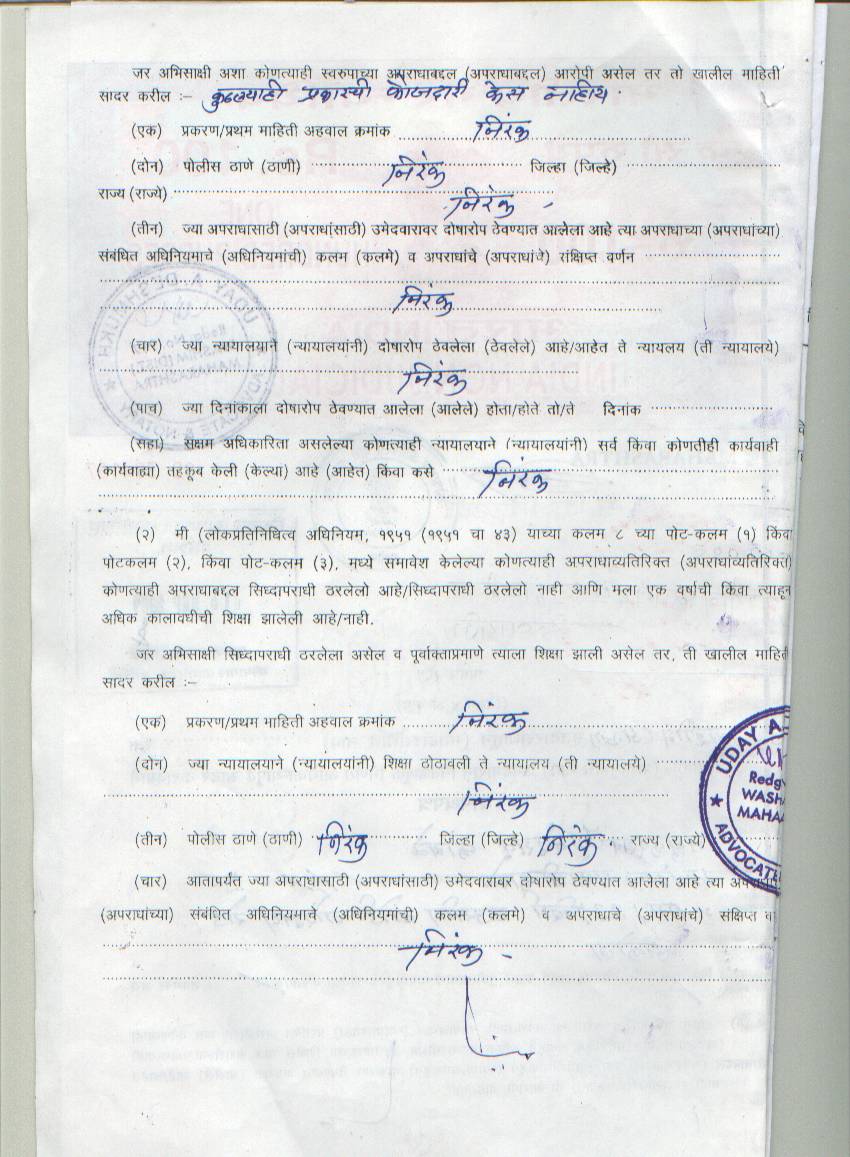 जर अभिसाक्षी अशा कोणत्याही स्वरुपाच्या अपराधाबद्दल (अपराधाबद्दल) आरोपी असेल तर तो खालील माहिती
सादर करील :– कुठल्याही प्रकारची फौजदारी केस नाहीय.
(एक) प्रकरण/प्रथम माहिती अहवाल क्रमांक निरंक
(दोन) पोलीस ठाणे (ठाणी) निरंक जिल्हा (जिल्हे)
राज्य (राज्ये) निरंक -
(तीन) ज्या अपराधासाठी (अपराधांसाठी) उमेदवारावर दोषारोप ठेवण्यात आलेला आहे त्या अपराधाच्या (अपराधांच्या)
संबंधित अधिनियमाचे (अधिनियमांची) कलम (कलमे) व अपराधांचे (अपराधांचे) संक्षिप्त वर्णन
निरंक
(चार) ज्या न्यायालयाने (न्यायालयांनी) दोषारोप ठेवलेला (ठेवलेले) आहे/आहेत ते न्यायलय (ती न्यायालये)
निरंक
(पाच) ज्या दिनांकाला दोषारोप ठेवण्यात आलेला (आलेले) होता/होते तो/ते दिनांक
(सहा) सक्षम अधिकारिता असलेल्या कोणत्याही न्यायालयाने (न्यायालयांनी) सर्व किंवा कोणतीही कार्यवाही
(कार्यवाह्या) तहकूब केली (केल्या) आहे (आहेत) किंवा कसे निरंक
(२) मी (लोकप्रतिनिधित्व अधिनियम, १९५१ (१९५१ चा ४३) याच्या कलम ८ च्या पोट-कलम (१) किंवा
पोटकलम (२), किंवा पोट-कलम (३), मध्ये समावेश केलेल्या कोणत्याही अपराधाव्यतिरिक्त (अपराधांव्यतिरिक्त)
कोणत्याही अपराधाबद्दल सिध्दापराधी ठरलेलो आहे/सिध्दापराधी ठरलेलो नाही आणि मला एक वर्षाची किंवा त्याहून
अधिक कालावधीची शिक्षा झालेली आहे/नाही.
जर अभिसाक्षी सिध्दापराधी ठरलेला असेल व पूर्वाक्ताप्रमाणे त्याला शिक्षा झाली असेल तर, ती खालील माहिती
सादर करील :–
(एक) प्रकरण/प्रथम माहिती अहवाल क्रमांक निरंक
(दोन) ज्या न्यायालयाने (न्यायालयांनी) शिक्षा ठोठावली ते न्यायालय (ती न्यायालये)
निरंक
(तीन) पोलीस ठाणे (ठाणी) निरंक जिल्हा (जिल्हे) निरंक राज्य (राज्ये)
(चार) आतापर्यंत ज्या अपराधासाठी (अपराधांसाठी) उमेदवारावर दोषारोप ठेवण्यात आलेला आहे त्या
(अपराधांच्या) संबंधित अधिनियमाचे (अधिनियमांची) कलम (कलमे) व अपराधाचे (अपराधांचे) संक्षिप्त
निरंक -
UDAY A
Redg
WASH
MAHA
ADVOCATE